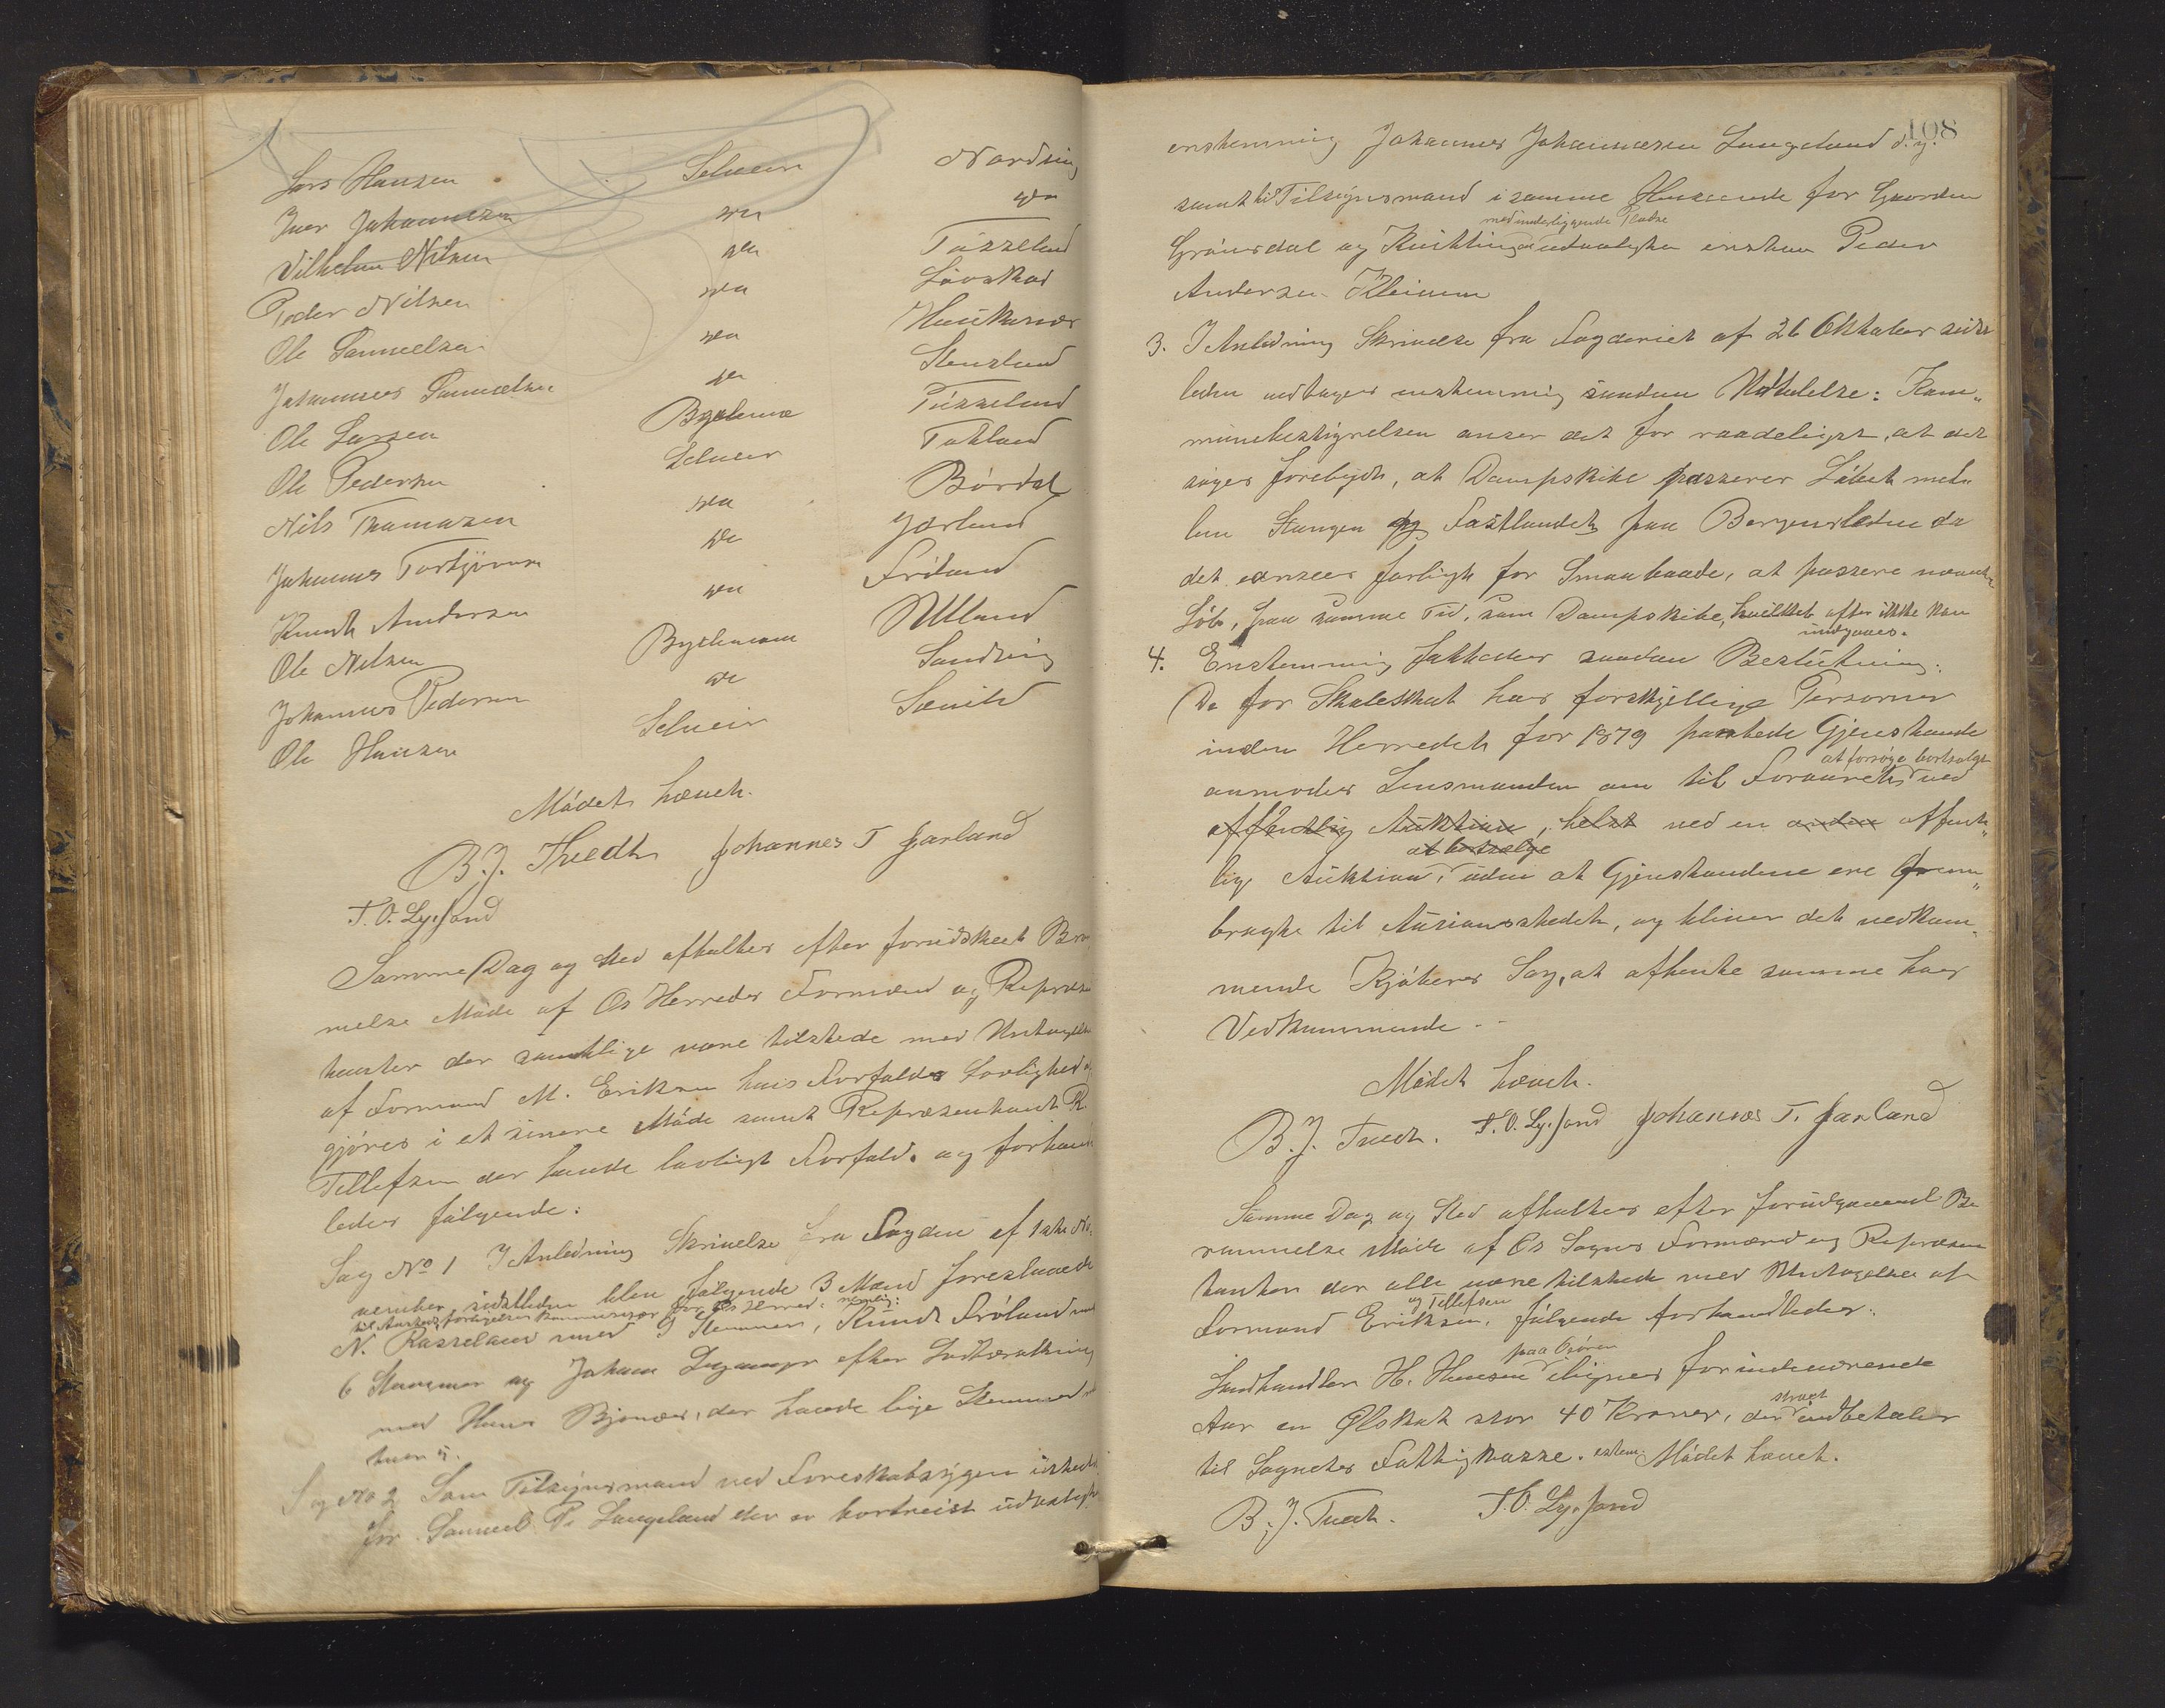 Lars Hansen Selveier Nordvig
Iver Johannesen do do
Vilhelm Nilsen do Tøsseland
Peder Nilsen do Løvskar
Ole Samuelsen do Hauknes
Johannes Samuelsen do Stensland
Ole Larsen Bygslemand Tøsseland
Ole Pedersen Selveier Tøkland
Nils Thomasen do Bördal
Johannes Torbjörnsen do Jarland
Knudt Andersen do Fröland
Ole Nilsen Bygslemand Ulland
Johannes Pedersen do Sandvig
Ole Hansen Selveier
Mödet hævet.
B. J. Tvedt Johannes T Jarland
T. O. Lysland
Samme Dag og Sted afholtes efter forudskeet Bram-
melse Möde af Os Herreds Formænd og Repræsen
tanter der samtlige vare tilstede med Undtagelse
af Formand M. Eriksen hvis Forfalds Lovlighed af
gjöres i et senere Möde samt Repræsentant R.
Tellefsen der havde lovligt Forfald. og forhand
ledes fölgende:
Sag No 1 I Anledning Skrivelse fra Fogden af 1ste No-
vember sidstleden blev fölgende 3 Mænd foreslaaede
til Forligelses Kommissær for Os Herred: nemlig:
N. Rasseland med 9 Stemmer, Knud Fröland med
6 Stemmer og Johan efter Lodtrækning
med Hans Bjonæs, der havde lige Stemmer
Sag No 2 Som Tilsynsmand ved
for Samuel P. Langeland der er bortreist udvalgtes
108
enstemmig Johannes Johannesen Langeland d. y.
samt til Tilsynsmand i samme Henseende for Gaarden
med underliggende Pladse
Gröinsdal og Kuhlling udvalgtes enstem Peder
Andersen Kleiven
3. I Anledning Skrivelse fra Fogderiet af 26 Oktober sidst
leden vedtages enstemmig saadan Udtalelse: Kom-
munebestyrelsen anser det for raadeligst, at det
söges forebygt, at Dampskibe passerer Löbet mel-
lem Stangen og Fastlandet paa Bergensleden da
det ansees farligt for Smaabaade, at passere nævnte
Löb, paa samme Tid, som Dampskibe, hvilket ofte ikke kan
undgaaes.
4. Enstemmig fattedes saadan Beslutning:
De for Skoleskat hos forskjellige Personer
inden Herredet for 1879 pantede Gjenstande
at forsöge bortsolgt
anmodes Lensmanden om til Foraaret ved
offentlig Auktion, helst ved en anden offent-
at bortsælge
lig Auktion, uden at Gjenstandene ere frem-
bragte til Auksionsstedet, og bliver det vedkom-
mende Kjöberes Sag, at afhente samme hos
Vedkommende.
Mödet hævet.
B. J. Tvedt. T. O. Lysland Johannes T. Jarland
Samme Dag og Sted afholtes efter forudgaaend Be
rammelse Möde af Os Sogns Formænd og Repræsen
tanter der alle vare tilstede med Undtagelse af
og Tellefsen
Formand Eriksen, fölgende forhandledes:
paa Osören
Landhandler H. Hansen ilignes for indeværende
strax
Aar en Ölskat stor 40 Kroner, der indbetales
til Sognets Fattigkasse. enstem. Mödet hævet.
B. J. Tvedt. T. O. Lysland